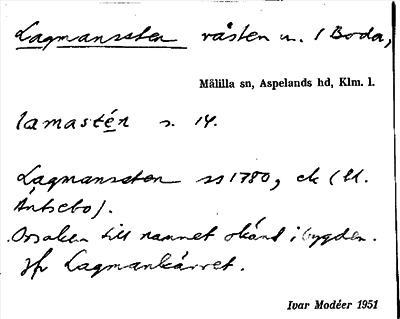 Lagmanssten råsten n. 1 Boda,
Målilla sn, Aspelands hd, Klm. l.
lamastén s. 14.
Lagmanssten ss 1780, ek (Ll.
Äntsebo).
Orsaken till namnet okänd i bygden.
Jfr Lagmankärret.
Ivar Modéer 1951